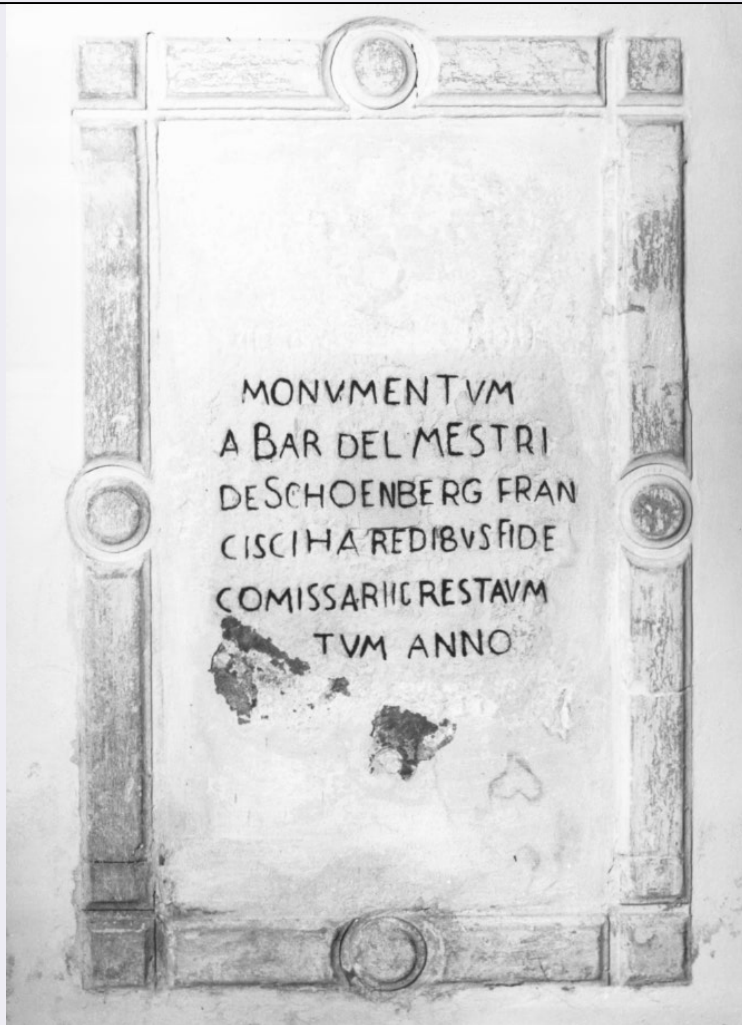 MONVMENTVM
A BAR DEL MESTRI
DE SCHOENBERG FRAN
CISCI HAREDIBVS FIDE
COMISSARIIC RESTAVM
TVM ANNO